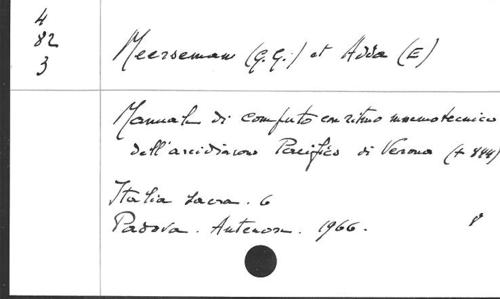 4
82
3
Meersseman (G.G.) et Adda (E)
Manuale di computo con ritmo mnemotecnico
dell'arcidiacono Pacifico di Verona († 844)
Italia sacra. 6
Padova. Antenore. 1966.